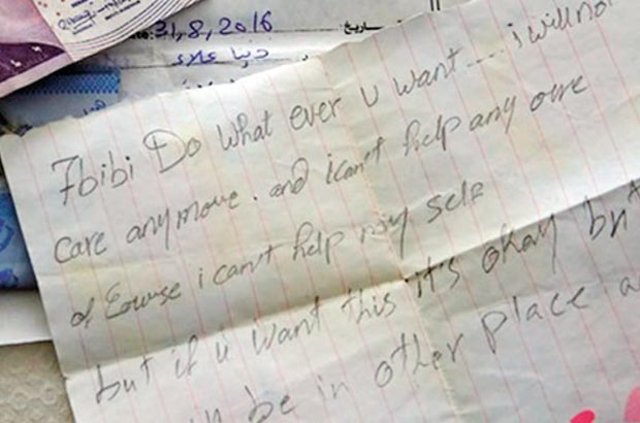 31,8,2016
تاريخ
دنيا علاء
7bibi Do what ever u want .... i will not
care any more. and i can't help any one
of Course i can't help my self
but if u want this it's okay but
be in other place